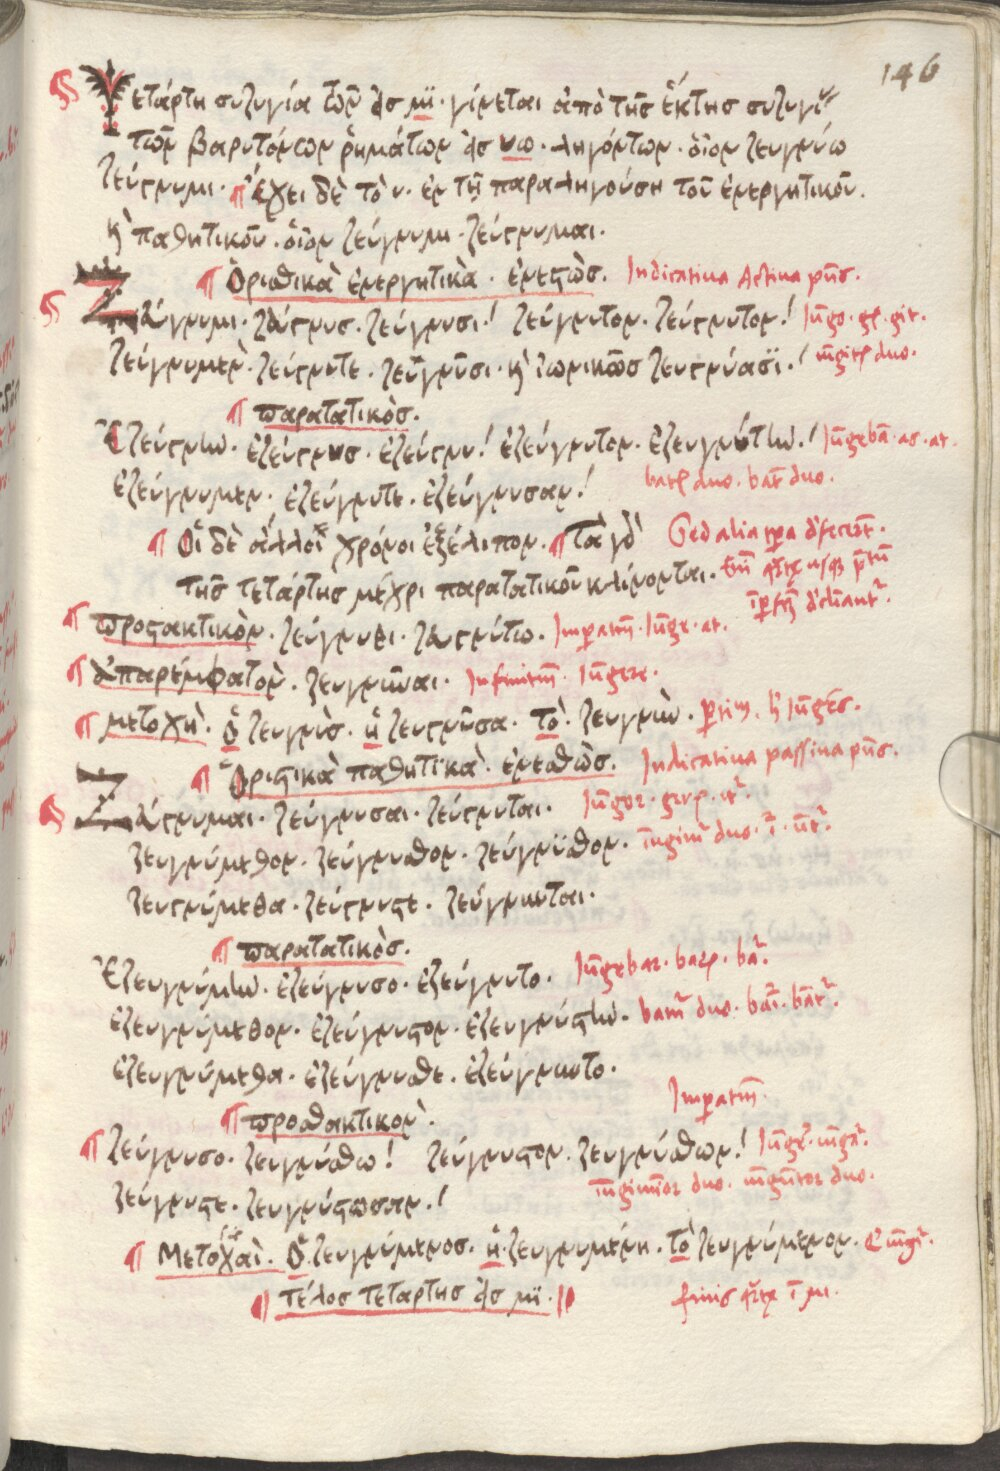 146
Τετάρτη συζυγία τῶν εἰς μι· γίνεται ἀπὸ τῆς ἕκτης συζυγί
τῶν βαρυτόνων ῥημάτων εἰς νω· ληγόντων· οἷον ζευγνύω
ζεύγνυμι· ¶ ἔχει δὲ τὸ υ· ἐν τῇ παραληγούση τοῦ ἐνεργητικοῦ.
κ' παθητικοῦ· οἷον ζεύγνυμι· ζεύγνυμαι.
¶ Ὁρισθικὰ ἐνεργητικὰ· ἐνεστὼς. Indicatiua Actiua pn̄s.
Ζεύγνυμι· ζεύγνυς· ζεύγνυσι! ζεύγνυτον· ζεύγνυτον! Iūgo· gis· git·
ζεύγνυμεν· ζεύγνυτε· ζεῦγνῦσι· κ' ἰωνικῶς ζευγνύασϊ.! ūgitis duo.
¶ παρατατικὸς.
Ἐζεύγνων· ἐζεύγνυς· ἐζεύγνυ! ἐζεύγνυτον· ἐζευγνύτην.! Iūgebā· as· at·
ἐζεύγνυμεν· ἐζεύγνυτε· ἐζεύγνυσαν! batis duo· bāt duo.
¶ Οἱ δὲ ἄλλοι χρόνοι ἐξέλιπον. ¶ Τὰ γδ Sed alia tp̄a
τῆς τετάρτης μέχρι παρατατικοῦ κλίνονται.
¶ προστακτικὸν. ζεύγνυθι· ζευγνύτω. Imperatiū· Iūge· at.
¶ ἀπαρέμφατον. ζευγνύναι. Infinitiū· Iūgere.
¶ μετοχὴ. ὁ ζευγνὺς. ἡ ζευγνῦσα. τὸ. ζευγνὺν. Iūgēs.
¶ Ὁριστικὰ παθητικὰ· ἐνεσθὼς. Indicatiua passiua pn̄s.
Ζεύγνυμαι· ζεύγνυσαι· ζεύγνυται. Iūgor· geris· it̄.
ζευγνύμεθον· ζεύγνυσθον· ζεύγνϋσθον. iūgimur duo.
ζευγνύμεθα· ζεύγνυστε· ζεύγνυνται.
¶ παρατατικὸς.
Ἐζευγνύμην. ἐζεύγνυσο· ἐζεύγνυτο. Iūgebar· baris· bat̄.
ἐζευγνύμεθον· ἐζεύγνυστον· ἐζευγνύστην. bamr̄ duo· bāi· bāt̄.
ἐζευγνύμεθα· ἐζεύγνυσθε. ἐζεύγνυντο.
¶ προσθακτικὸν. Imperatiū.
¶ Ζεύγνυσο· ζευγνύσθω! ζεύγνυστον· ζευγνύσθων! Iūgere·
ζεύγνυστε· ζευγνύστωσαν.! iūgimior duo· iūgūtor duo.
¶ Μετοχαὶ. ὁ ζευγνύμενος. ἡ ζευγνυμένη. τὸ ζευγνύμενον.
¶ τέλος τετάρτης εἰς μϊ. finis quartę ī μι